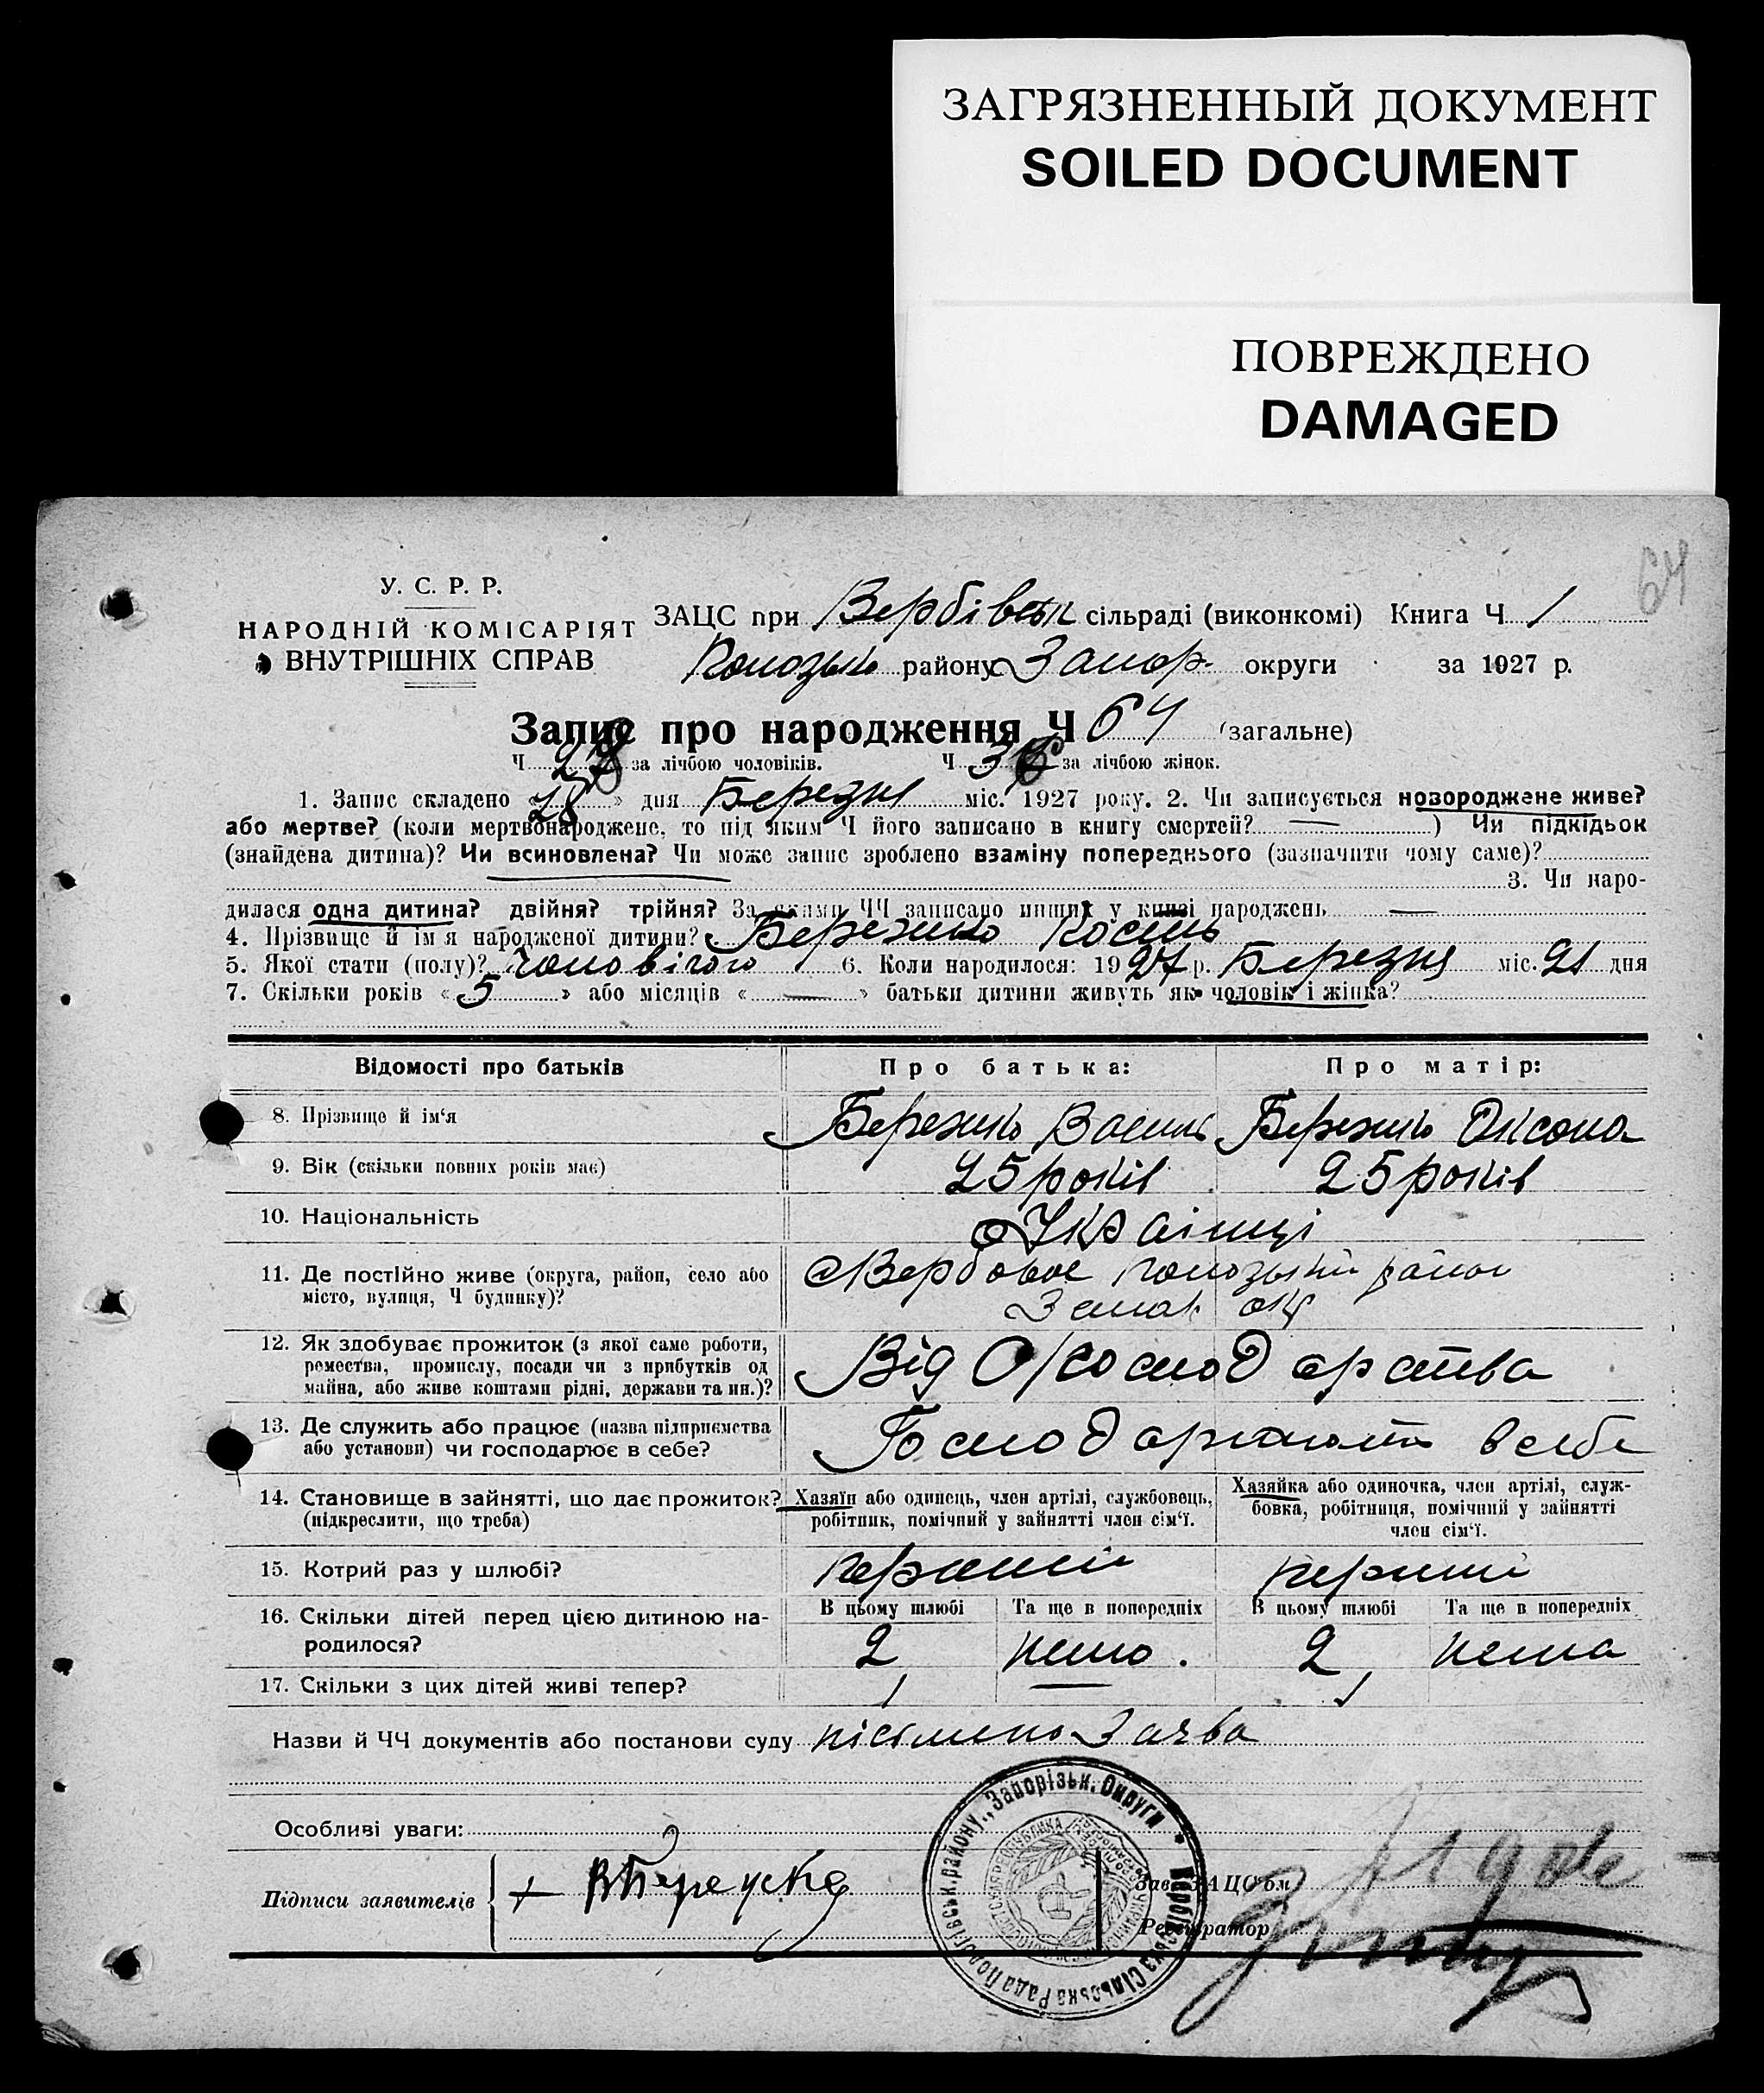 ЗАГРЯЗНЕННЫЙ ДОКУМЕНТ
SOILED DOCUMENT
ПОВРЕЖДЕНО
DAMAGED
64
У. С. Р. Р.
НАРОДНІЙ КОМІСАРІЯТ
ВНУТРІШНІХ СПРАВ
ЗАЦС при Вербівськ сільраді (виконкомі) Книга Ч 1
району Запор. округи за 1927 р.
Запис про народження Ч 64 (загальне)
Ч 28 за лічбою чоловіків. Ч 36 за лічбою жінок.
1. Запис складено « 28 » дня Березня міс. 1927 року. 2. Чи записується новороджене живе?
або мертве? (коли мертвонароджене, то під яким Ч його записано в книгу смертей? — ) Чи підкідьок
(знайдена дитина)? Чи всиновлена? Чи може запис зроблено взаміну попереднього (зазначити чому саме)?
3. Чи наро-
дилася одна дитина? двійня? трійня? За якими ЧЧ записано инших у книзі народжень —
4. Прізвище й ім'я народженої дитини? Кость
5. Якої стати (полу)? Чоловічого 6. Коли народилося: 1927 р. Березня міс. 21 дня
7. Скільки років « 5 » або місяців « — » батьки дитини живуть як чоловік і жінка?
Відомості про батьків
Про батька:
Про матір:
8. Прізвище й ім'я
Василь
Оксана
9. Вік (скільки повних років має)
25 років
25 років
10. Національність
Українці
11. Де постійно живе (округа, район, село або
місто, вулиця, Ч будинку)?
Вербове район
окр
12. Як здобуває прожиток (з якої саме роботи,
ремества, промислу, посади чи з прибутків од
майна, або живе коштами рідні, держави та ин.)?
Від с/господарства
13. Де служить або працює (назва підприємства
або установи) чи господарює в себе?
Господарюють в себе
14. Становище в зайнятті, що дає прожиток?
(підкреслити, що треба)
Хазяїн або одинець, член артілі, службовець,
робітник, помічний у зайнятті член сім'ї.
Хазяйка або одиночка, член артілі, служ-
бовка, робітниця, помічний у зайнятті
член сім'ї.
15. Котрий раз у шлюбі?
перший
перший
16. Скільки дітей перед цією дитиною на-
родилося?
В цьому шлюбі
Та ще в попередніх
В цьому шлюбі
Та ще в попередніх
2
нема.
2
нема
17. Скільки з цих дітей живі тепер?
1
—
1
Назви й ЧЧ документів або постанови суду письмена Заява
Особливі уваги:
Підписи заявителів
Зав. ЗАЦС'ом
Реєстратор
Вербівська Сільська Рада Пологівськ. району, Запорізьк. Округи